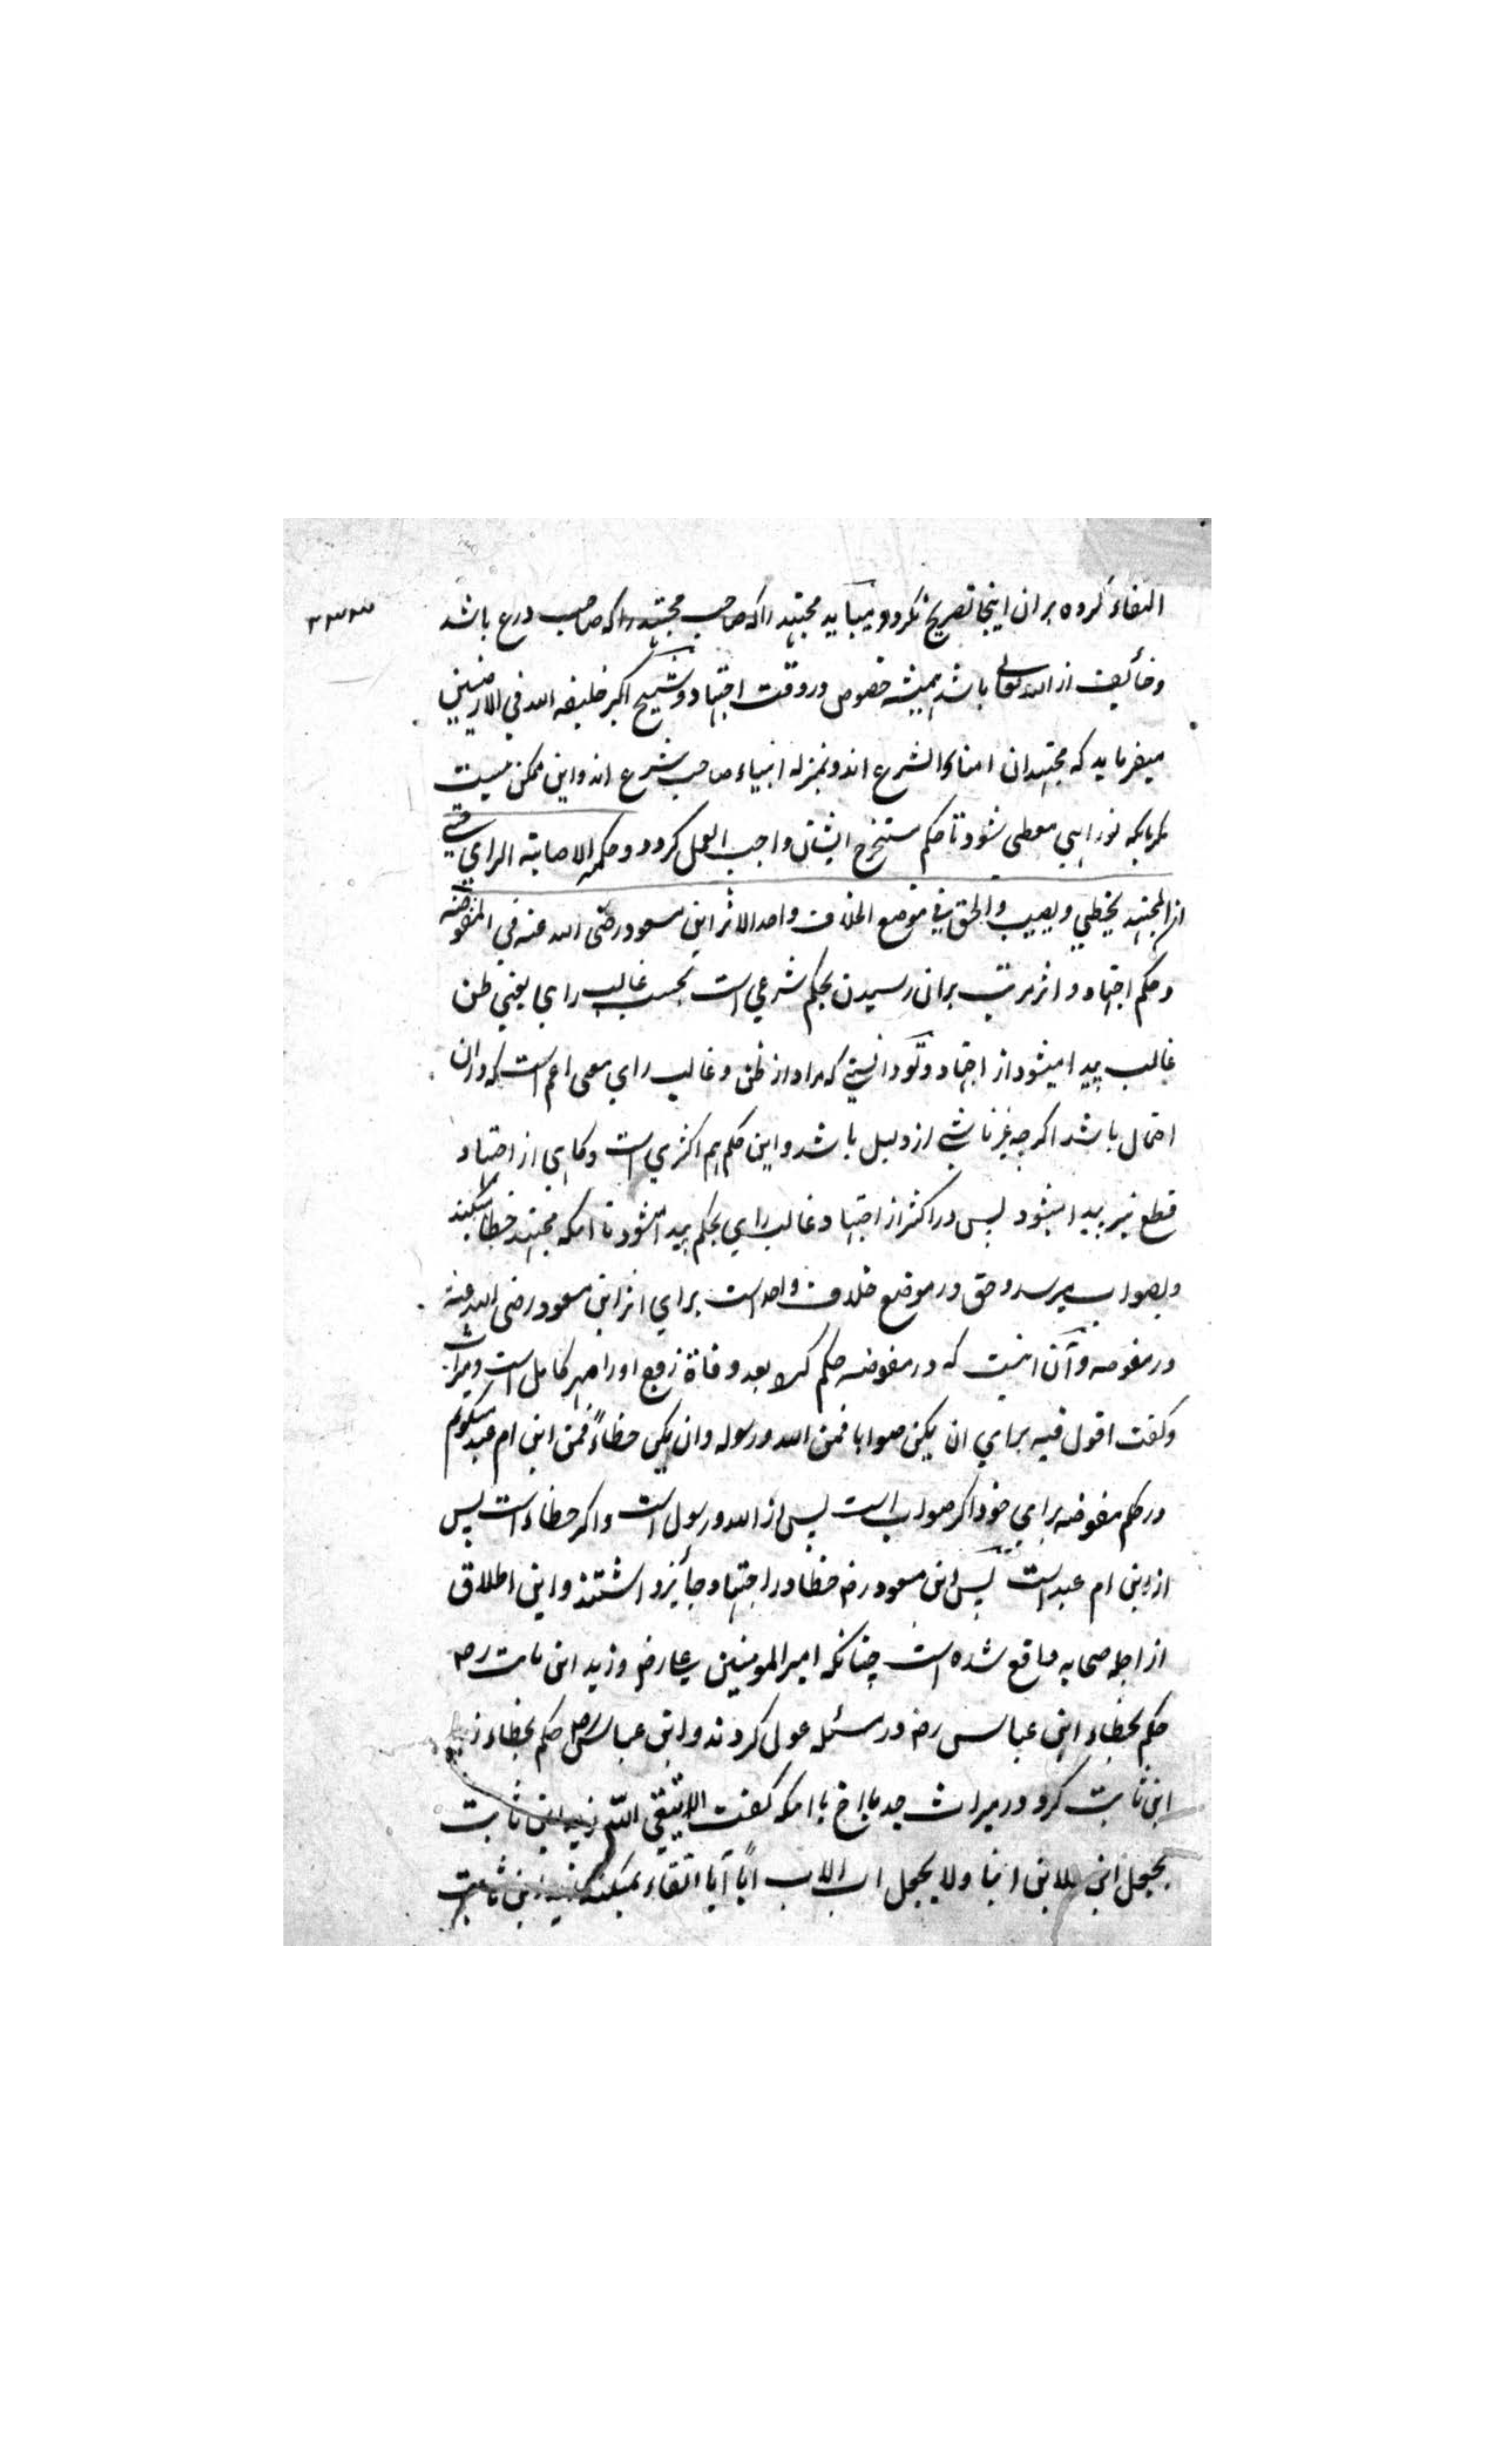 ۳۳۳
التفاء کرده بران اینجا تصریح نکرد و میباید مجتهد را که صاحب مجتهد را که صاحب ورع باشد
وخائف از الله تعالی باشد همیشه خصوص در وقت اجتهاد و شیخ اکبر خلیفه الله فی الارضین
میفرماید که مجتهدان امناء الشرع اند و بمنزله انبیاء صاحب شرع اند و این ممکن نیست
مگر بانکه نور الهی معطی شود تا حکم مستخرج ایشان واجب العمل گردد وحکمه الاصابته الرای حتی
ان المجتهد یخطی ویصیب والحق فی موضع الخلاف واحد لاثر ابن مسعود رضی الله عنه فی المفوضه
وحکم اجتهاد و اثر مرتب بران رسیدن بحکم شرعی است بحسب غالب رای یعنی ظن
غالب پیدا میشود از اجتهاد و تو دانستی که مراد از ظن و غالب رای معنی اعم است که دران
احتمال باشد اگرچه غیر ناشی از دلیل باشد و این حکم هم اکثری است وگاهی از اجتهاد
قطع نیز پیدا میشود پس در اکثر از اجتهاد غالب رای بحکم پیدا میشود تا آنکه مجتهد خطا میکند
وبصواب میرسد وحق در موضع خلاف واحد است برای اثر ابن مسعود رضی الله عنه
در مفوضه وآن اینست که در مفوضه حکم کرد بعد وفاة زوج او را مهر کامل است ومیراث
وگفت اقول فیه برای ان یکن صوابا فمن الله ورسوله وان یکن خطاءً فمن ابن ام عبد میگویم
در حکم مفوضه برای خود اگر صواب است پس از الله ورسول است واگر خطاء است پس
از ابن ام عبد است پس ابن مسعود رض خطا در اجتهاد جائز داشتند و این اطلاق
از اجله صحابه واقع شده است چنانکه امیر المومنین علی رض وزید ابن ثابت رض
حکم بخطاء ابن عباس رض در مسئله عول کردند وابن عباس رض حکم بخطاء زید
ابن ثابت کرد در میراث جد با اخ با آنکه گفت الا یتقی الله زید ابن ثابت
یجعل ابن الابن ابنا ولا یجعل اب الاب ابًا آیا اتقاء نمیکند زید ابن ثابت